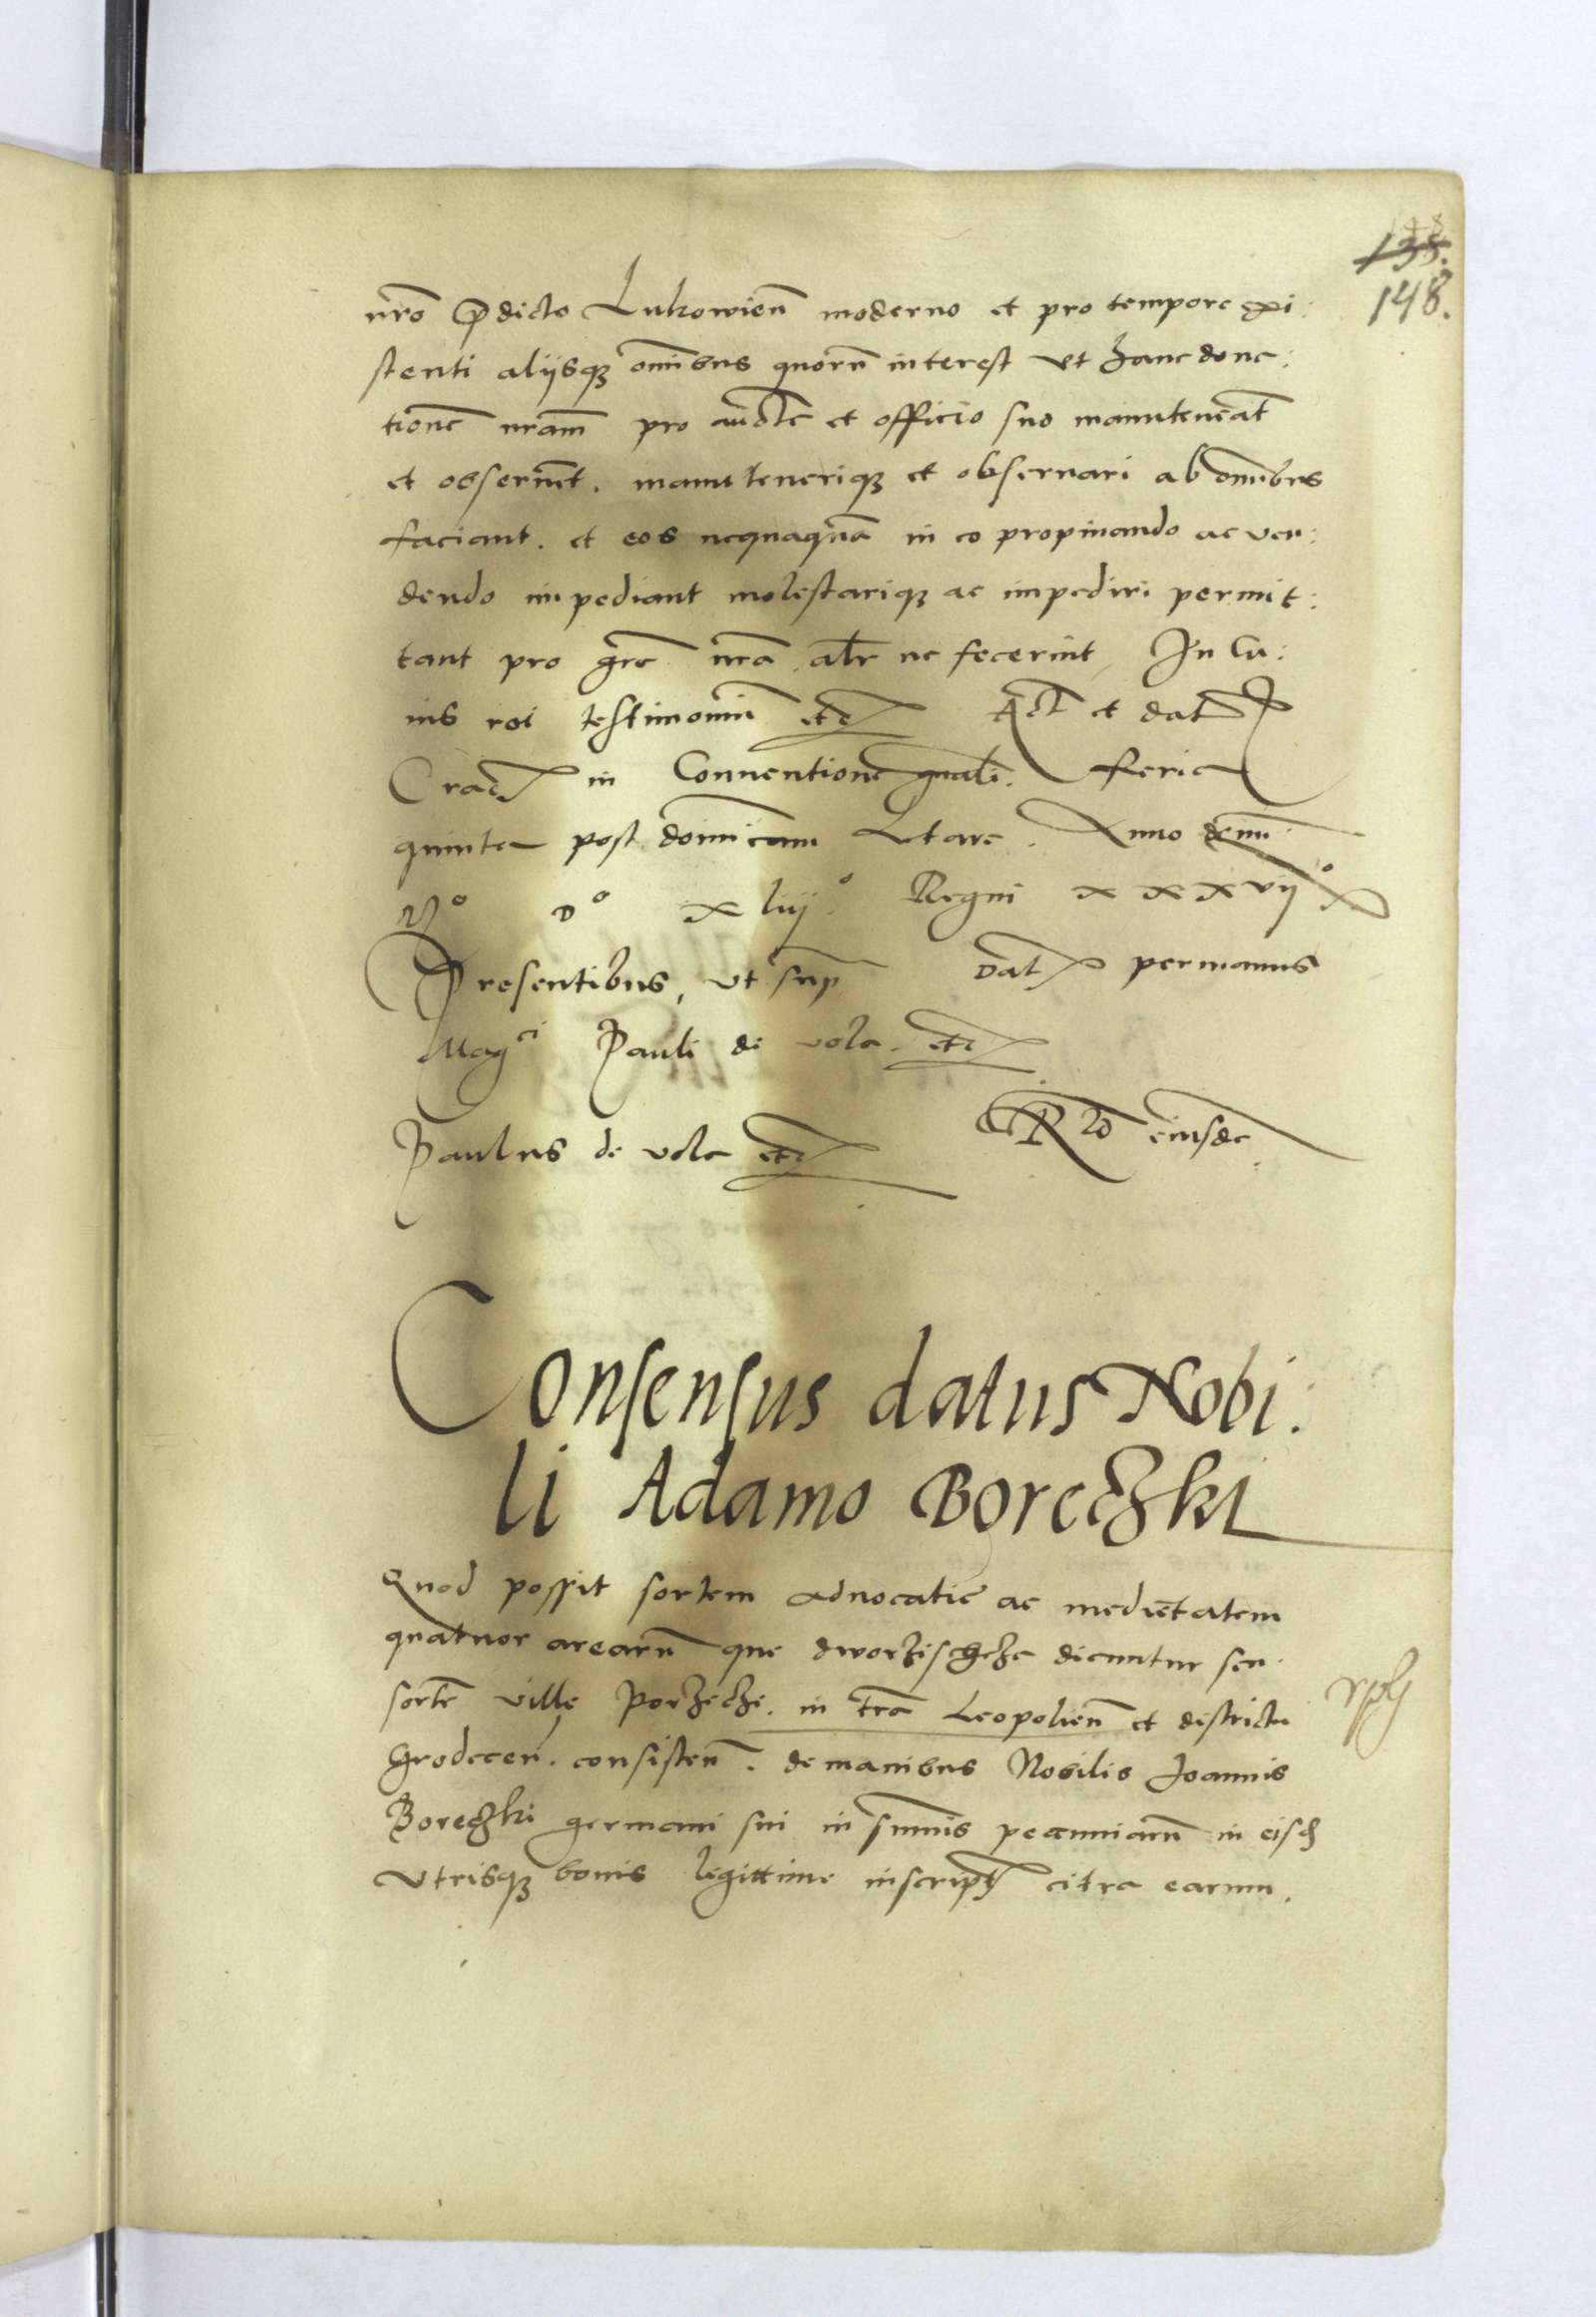 135.
148.
nrō p̄dicto Lukowien̄ moderno et pro tempore exi:
stenti aliisqȝ om̄ibus quorū interest vt hanc dona:
tionē nrām pro aucte et officio suo manuteneāt
et obserūet. manutenerique et obseruari ab om̄ibus
faciant. et eos nequaquā in eo propinando ac ven:
dendo impediant molestariqȝ ac impediri permit:
tant pro grā nrā alr̄ ne fecerint, In Cu:
ius rei testimoniū etc Act et dat
Crac in Conuentione gnāli. feria
quinta post doīnicam Letare. Anno dnī
Mº Dº xliijº Regni xxxvijº
Presentibus, vt sup̄ Dat permanus
Magci Pauli de vola. etc
Paulus de vola etc Rº eiusdē
Consensus datus Nobi:
li Adamo Boreczki
Quod possit sortem aduocatie ac medietatem
quatuor arearū que dworzischcza dicuntur seu
sortē ville Porzeczi. in trā Leopolien̄ et destrictu
Grodecen̄. consisten̄. de manibus Nobilis Joannis
Boreczki germani sui in sum̄is pecuniarū in eisd
vtrisqȝ bonis legittime inscript citra earum.